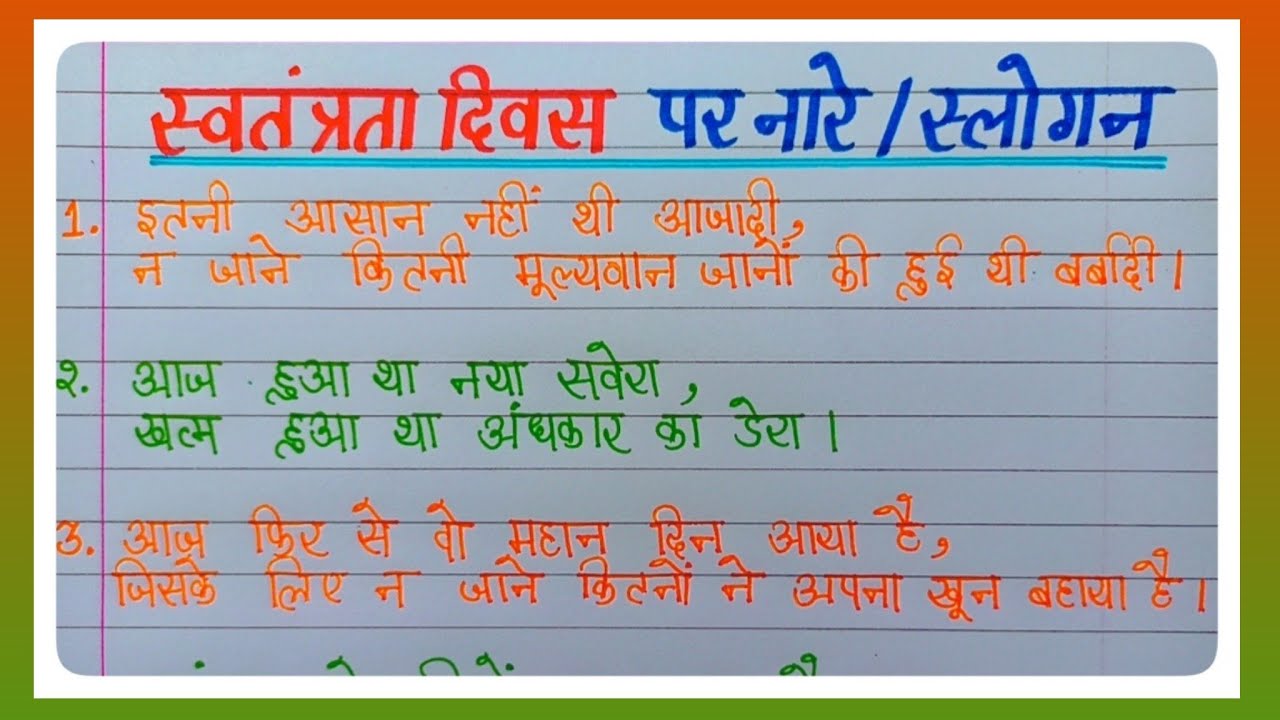 स्वतंत्रता दिवस पर नारे / स्लोगन
1. इतनी आसान नहीं थी आजादी,
न जाने कितनी मूल्यवान जानों की हुई थी बर्बादी।
२. आज हुआ था नया सवेरा,
खत्म हुआ था अंधकार का डेरा।
3. आज फिर से वो महान दिन आया है,
जिसके लिए न जाने कितनों ने अपना खून बहाया है।